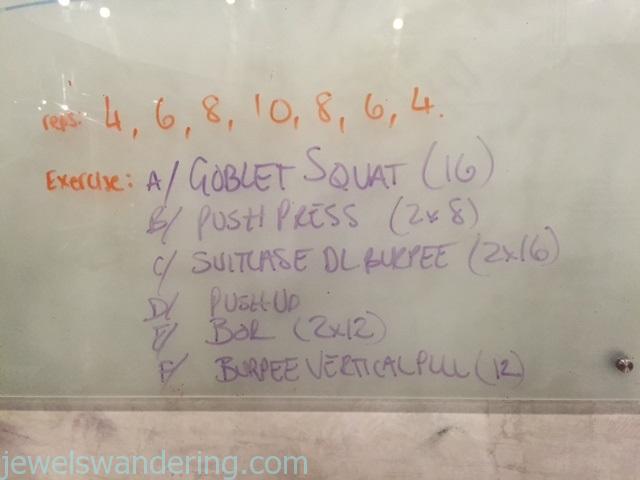 reps: 4, 6, 8, 10, 8, 6, 4.
Exercise: A/ GOBLET SQUAT (16)
B/ PUSH PRESS (2x8)
C/ SUITCASE DL BURPEE (2x16)
D/ PUSH UP
E/ BOR (2x12)
F/ BURPEE VERTICAL PULL (12)
jewelswandering.com